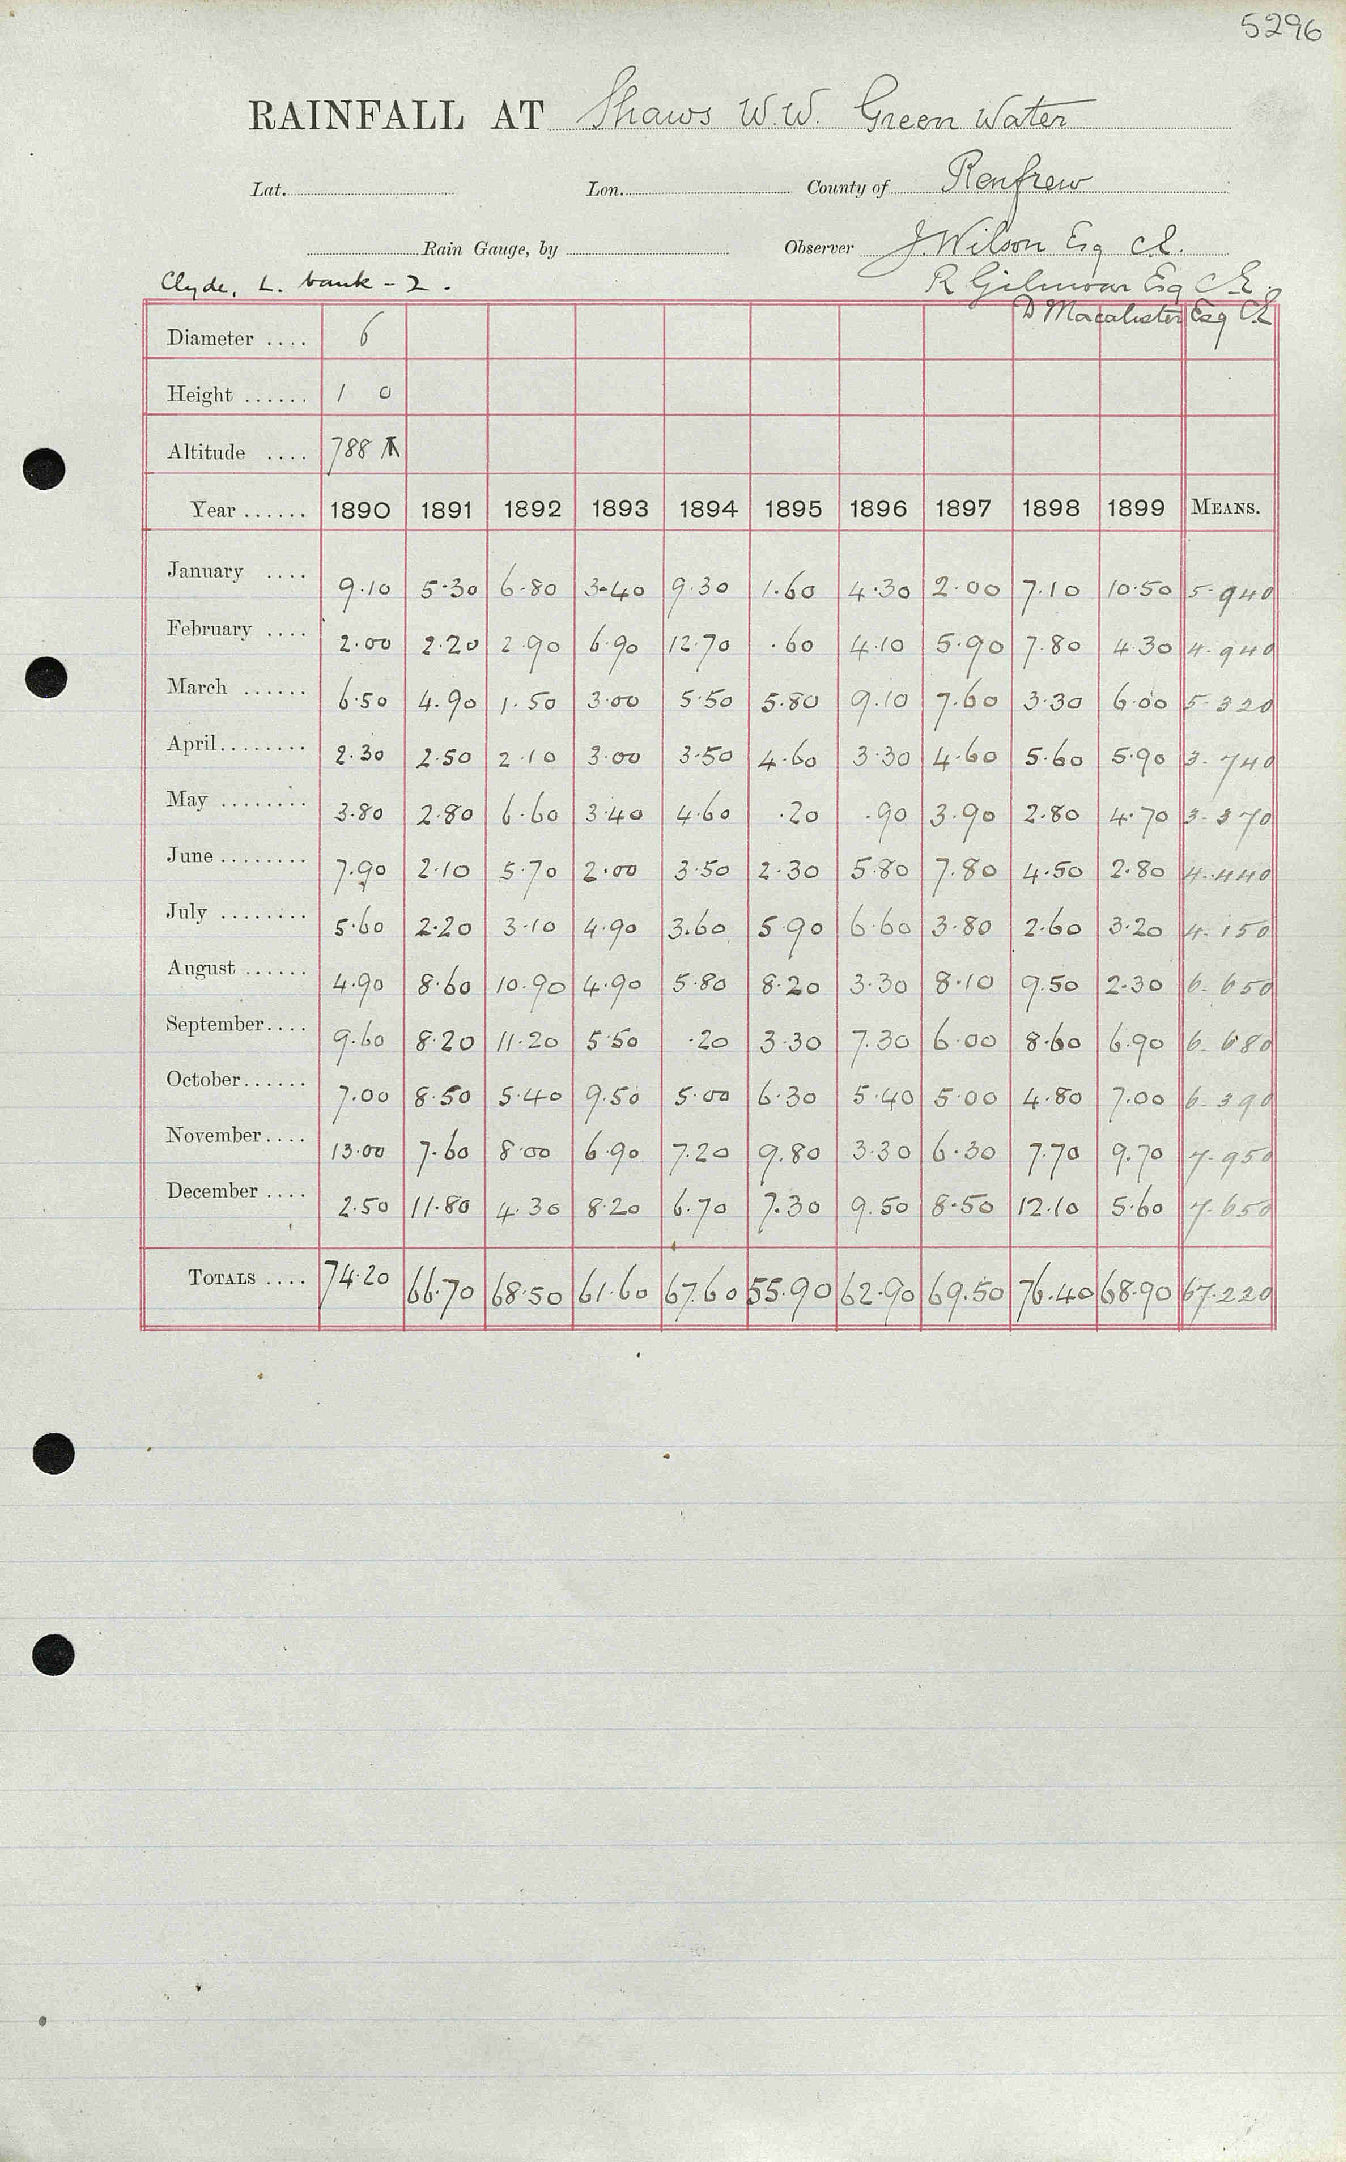 5296
RAINFALL AT Shaws W.W. Green Water
Lat. Lon. County of Renfrew
Rain Gauge, by Observer J Wilson Esq C.E.
Clyde, L. bank - 2. R Gilmour Esq C.E.
D Macalister Esq CE
Diameter .... 6
Height ...... 1 0
Altitude .... 788
Year ...... 1890 1891 1892 1893 1894 1895 1896 1897 1898 1899 MEANS.
January .... 9.10 5.30 6.80 3.40 9.30 1.60 4.30 2.00 7.10 10.50 5.940
February .... 2.00 2.20 2.90 6.90 12.70 .60 4.10 5.90 7.80 4.30 4.940
March ...... 6.50 4.90 1.50 3.00 5.50 5.80 9.10 7.60 3.30 6.00 5.320
April........ 2.30 2.50 2.10 3.00 3.50 4.60 3.30 4.60 5.60 5.90 3.740
May ........ 3.80 2.80 6.60 3.40 4.60 .20 .90 3.90 2.80 4.70 3.370
June ........ 7.90 2.10 5.70 2.00 3.50 2.30 5.80 7.80 4.50 2.80 4.440
July ........ 5.60 2.20 3.10 4.90 3.60 5.90 6.60 3.80 2.60 3.20 4.150
August ...... 4.90 8.60 10.90 4.90 5.80 8.20 3.30 8.10 9.50 2.30 6.650
September.... 9.60 8.20 11.20 5.50 .20 3.30 7.30 6.00 8.60 6.90 6.680
October...... 7.00 8.50 5.40 9.50 5.00 6.30 5.40 5.00 4.80 7.00 6.390
November.... 13.00 7.60 8.00 6.90 7.20 9.80 3.30 6.30 7.70 9.70 7.950
December .... 2.50 11.80 4.30 8.20 6.70 7.30 9.50 8.50 12.10 5.60 7.650
TOTALS .... 74.20 66.70 68.50 61.60 67.60 55.90 62.90 69.50 76.40 68.90 67.220